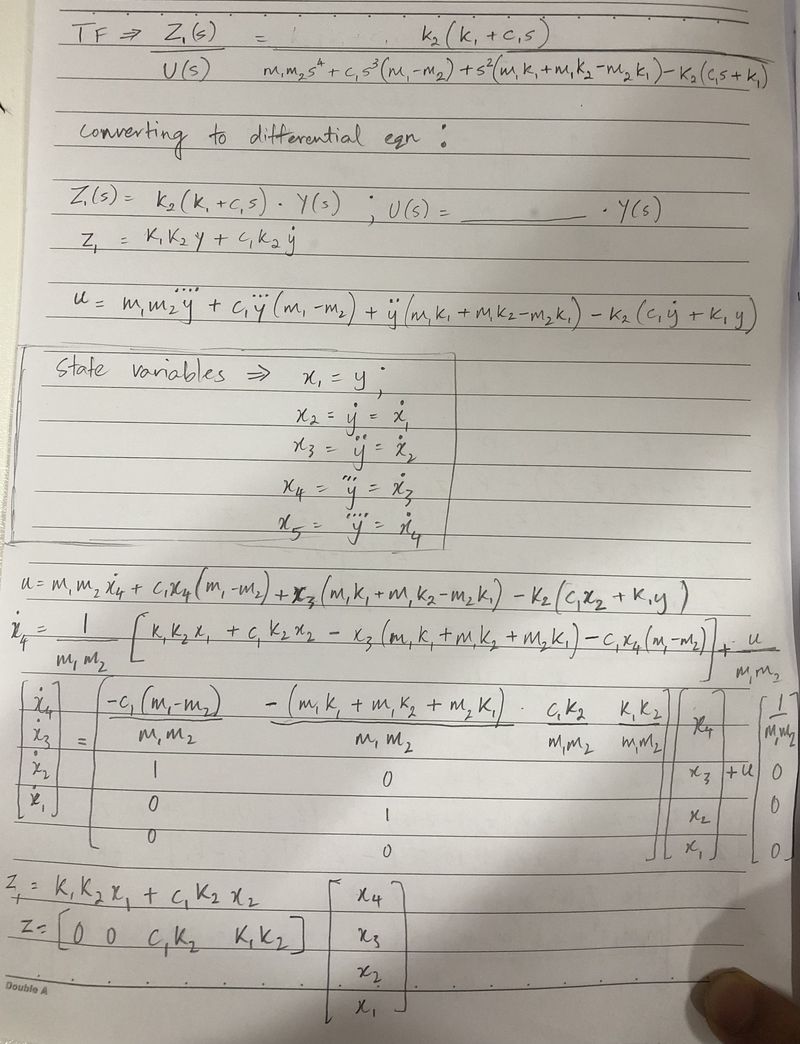 TF ⇒ Z₁(s) = k₂(k₁+c₁s)
U(s) m₁m₂s⁴ + c₁s³(m₁-m₂) + s²(m₁k₁+m₁k₂-m₂k₁) - k₂(c₁s+k₁)
Converting to differential eqn :
Z₁(s) = k₂(k₁+c₁s) · Y(s) ; U(s) = ________ · Y(s)
z₁ = k₁k₂y + c₁k₂ẏ
u = m₁m₂y⃜ + c₁y⃛(m₁-m₂) + ÿ(m₁k₁+m₁k₂-m₂k₁) - k₂(c₁ẏ + k₁y)
State variables ⇒ x₁ = y ;
x₂ = ẏ = ẋ₁
x₃ = ÿ = ẋ₂
x₄ = y⃛ = ẋ₃
x₅ = y⃜ = ẋ₄
u = m₁m₂ẋ₄ + c₁x₄(m₁-m₂) + x₃(m₁k₁+m₁k₂-m₂k₁) - k₂(c₁x₂ + k₁y)
ẋ₄ = 1/m₁m₂ [k₁k₂x₁ + c₁k₂x₂ - x₃(m₁k₁+m₁k₂+m₂k₁) - c₁x₄(m₁-m₂)] + u/m₁m₂
[ẋ₄ = [-c₁(m₁-m₂)/m₁m₂ -(m₁k₁+m₁k₂+m₂k₁)/m₁m₂ · c₁k₂/m₁m₂ k₁k₂/m₁m₂] [x₄ + u [1/m₁m₂
ẋ₃ 1 0 x₃ 0
ẋ₂ 0 1 x₂ 0
ẋ₁] 0 0 x₁] 0]
z₁ = k₁k₂x₁ + c₁k₂x₂
z = [0 0 c₁k₂ k₁k₂] [x₄
x₃
x₂
x₁]
Double A